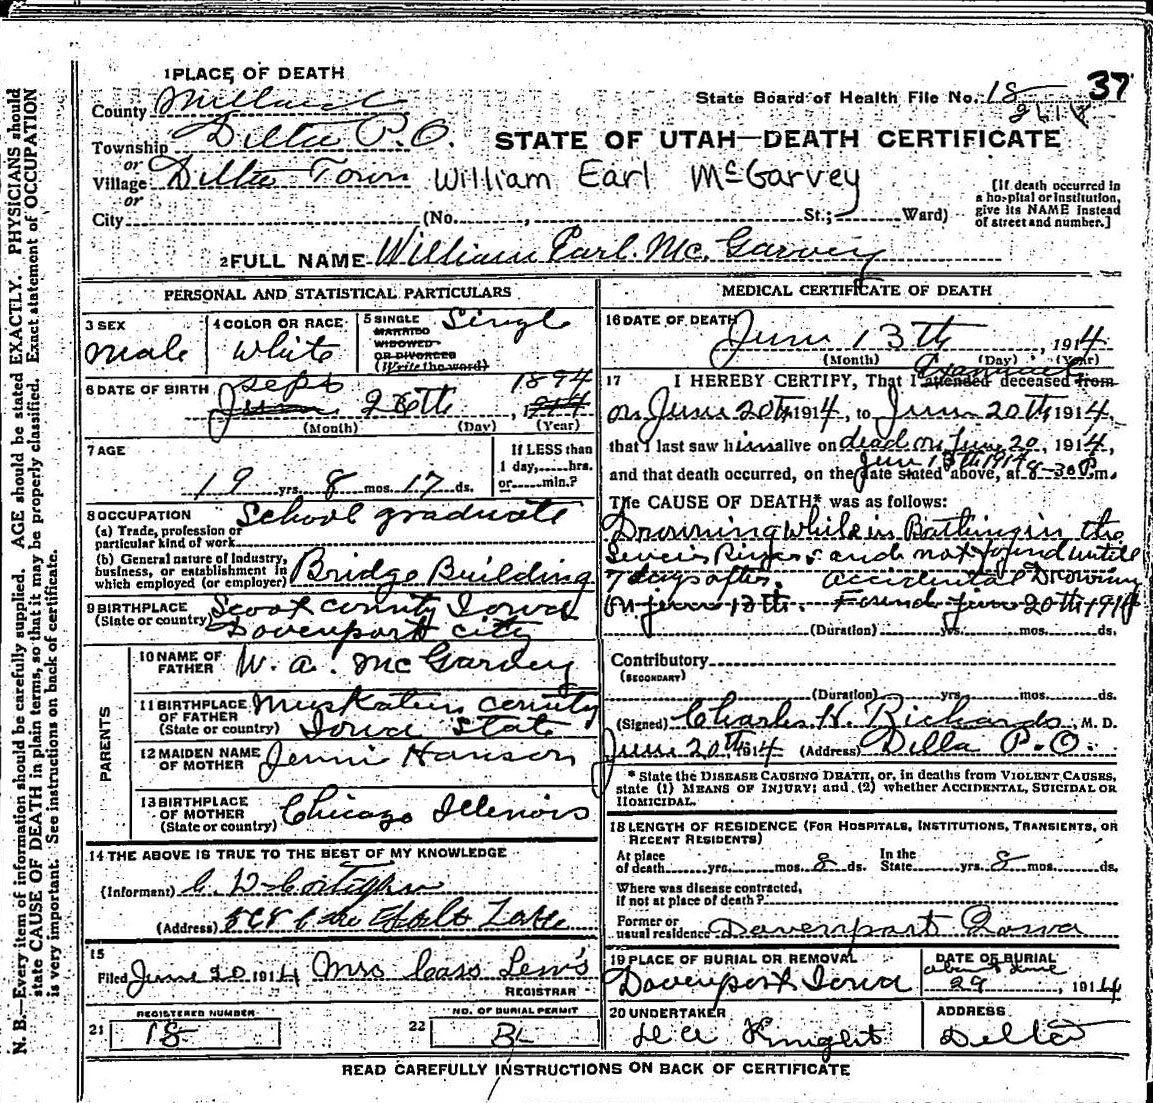 37
1 PLACE OF DEATH
County Millard
State Board of Health File No. 18
Township Delta P.O.
STATE OF UTAH—DEATH CERTIFICATE
or
Village Delta Town William Earl McGarvey
or
City (No. , St.; Ward)
[If death occurred in
a hospital or institution,
give its NAME instead
of street and number.]
2 FULL NAME William Earl. Mc. Garvey
PERSONAL AND STATISTICAL PARTICULARS
3 SEX
Male
4 COLOR OR RACE
White
5 SINGLE Singl
MARRIED
WIDOWED
OR DIVORCED
(Write the word)
6 DATE OF BIRTH Sept 26th, 1894
(Month) (Day) (Year)
7 AGE
19 yrs. 8 mos. 17 ds.
If LESS than
1 day, hrs.
or min.?
8 OCCUPATION School graduate
(a) Trade, profession or
particular kind of work
(b) General nature of industry,
business, or establishment in
which employed (or employer) Bridge Building
9 BIRTHPLACE Scoot county Iowa
(State or country) Davenport city
PARENTS
10 NAME OF
FATHER W. A. McGarvey
11 BIRTHPLACE
OF FATHER
(State or country) county
Iowa State
12 MAIDEN NAME
OF MOTHER Jenni Hanson
13 BIRTHPLACE
OF MOTHER
(State or country) Chicago Illinois
14 THE ABOVE IS TRUE TO THE BEST OF MY KNOWLEDGE
(Informant)
(Address)
15
Filed June 20 1914 Mrs Cass Lewis
REGISTRAR
REGISTERED NUMBER
21 18
NO. OF BURIAL PERMIT
22
MEDICAL CERTIFICATE OF DEATH
16 DATE OF DEATH June 13th, 1914
(Month) (Day) (Year)
17 I HEREBY CERTIFY, That I attended Examined deceased from
on June 20th 1914, to June 20th 1914,
that I last saw him alive on dead on June 20, 1914,
June 13th 1914
and that death occurred, on the date stated above, at 8-30 P.m.
The CAUSE OF DEATH* was as follows:
Drowning while in Bathing in the
Sevier River and not found until
7 days after. Accidental Drowning
on June 13th. Found June 20th 1914
(Duration) yrs. mos. ds.
Contributory
(SECONDARY)
(Duration) yrs. mos. ds.
(Signed) Charles H. Richards, M. D.
June 20th 1914 (Address) Delta P.O.
* State the DISEASE CAUSING DEATH, or, in deaths from VIOLENT CAUSES,
state (1) MEANS OF INJURY; and (2) whether ACCIDENTAL, SUICIDAL OR
HOMICIDAL.
18 LENGTH OF RESIDENCE (FOR HOSPITALS, INSTITUTIONS, TRANSIENTS, OR
RECENT RESIDENTS)
At place
of death yrs. mos. 8 ds.
In the
State yrs. 8 mos. ds.
Where was disease contracted,
if not at place of death?
Former or
usual residence Davenport Iowa
19 PLACE OF BURIAL OR REMOVAL
Davenport Iowa
DATE OF BURIAL
about June
29, 1914
20 UNDERTAKER
Knight
ADDRESS
Delta
READ CAREFULLY INSTRUCTIONS ON BACK OF CERTIFICATE
N. B.—Every item of information should be carefully supplied. AGE should be stated EXACTLY. PHYSICIANS should
state CAUSE OF DEATH in plain terms, so that it may be properly classified. Exact statement of OCCUPATION
is very important. See instructions on back of certificate.